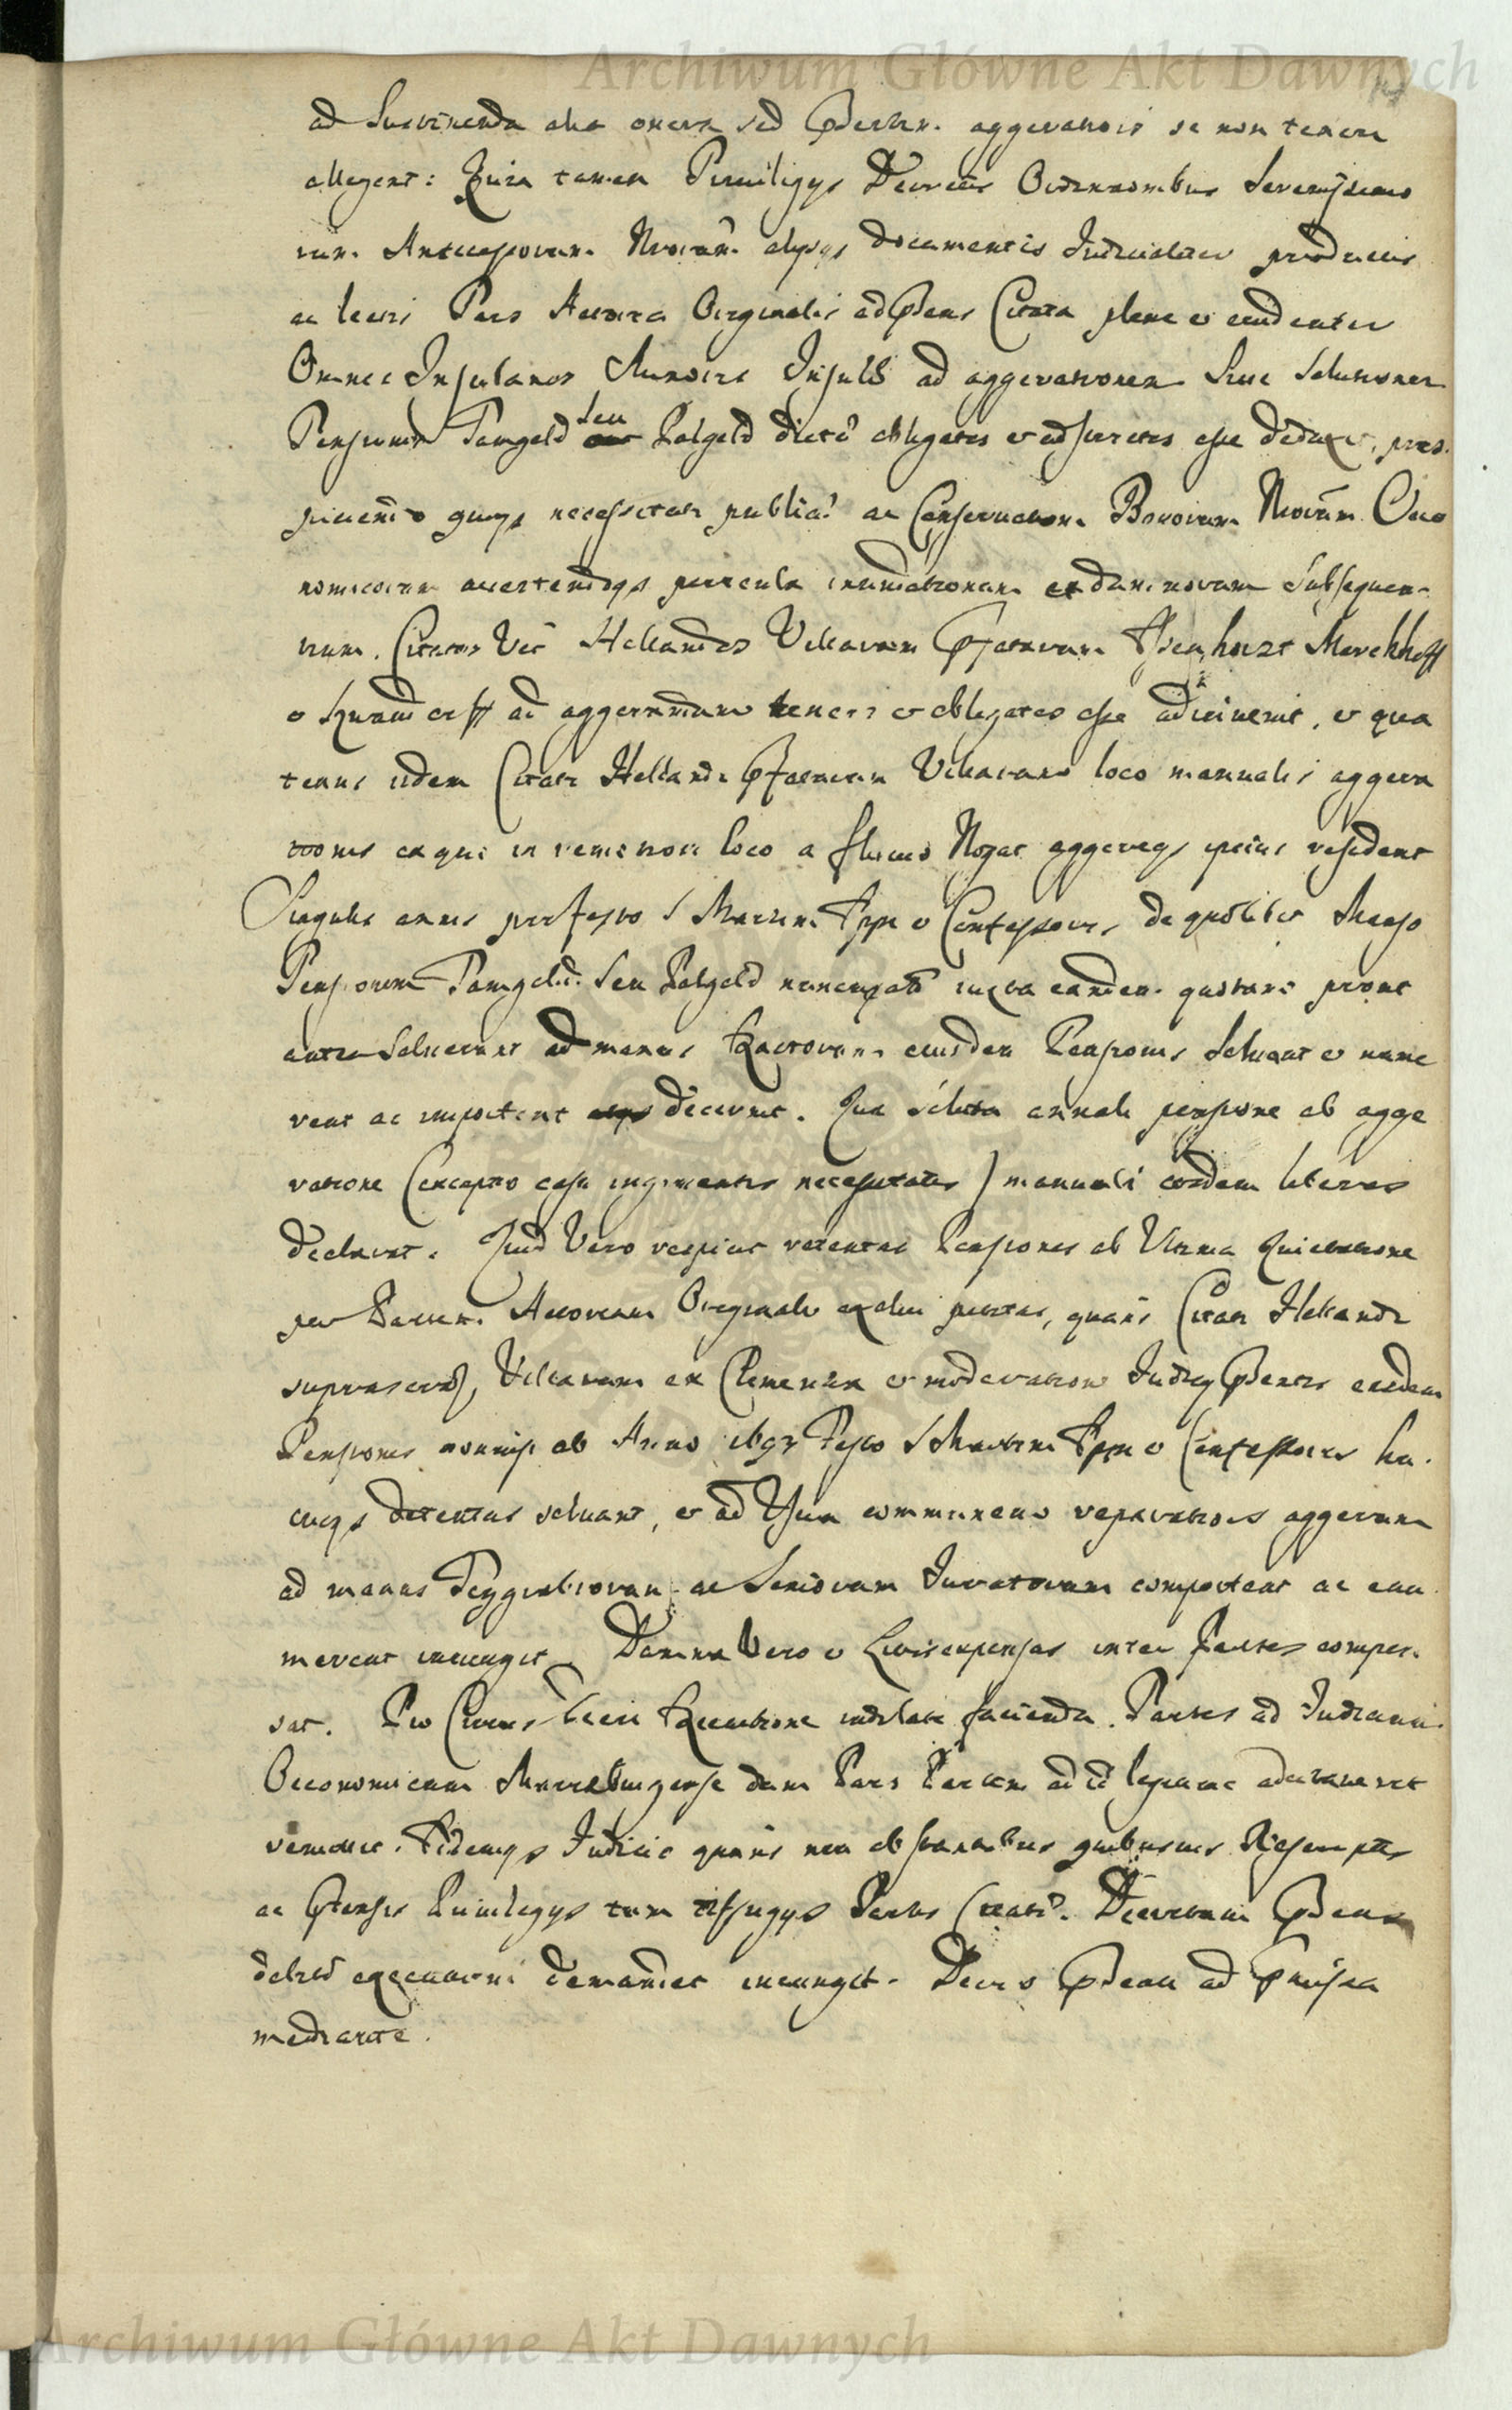 Archiwum Główne Akt Dawnych
ad sustinenda alia onera sed Pntem. aggerationis se non teneri
allegent: Quia tamen Privilegys Decretis Ordinaonibus Serenissimo
rum. Antecessorum. Nrorum. alysqs documentis Judicialiter productis
ac lectis Pars Actorea Originalis ad Pns Citata plene et evidenter
Omnes Insulanos Minoris Insulae ad aggerationem sive Solutionem
Pensionis Tamgeld seu Palgeld dictae obligatos et adstrictos esse deduxit, pros.
piciendo quoqs necessitati publicae ac Conservationi Bonorum Nrorum Oeco
nomicorum avertendoqs pericula inundationum et damnorum subsequen-
tium. Citatos Vti Hollandos Villarum Pfatarum Marckhoff
et ad aggerandum teneri et obligatos esse adinvenit, et qua
tenus iidem Citati Hollandi Pfatarum Villarum loco manualis aggera
tionis ex quo in remotiori loco a fluvio Nogat aggereqs ipsius resident
Singulis annis pro festo S Martini Eppi et Confessoris de quolibet Manso
Pensionem Tamgeld. seu Palgeld nuncupatam iuxta eandem quotam prout
antea solverunt ad manus Exactorum eiusdem Pensionis solvant et nume
rent ac important decernit. Qua soluta annali pensione ab agge
ratione (excepto casu ingruentis necessitatis) manuali eosdem liberos
declarat. Quod Vero respicit retentas Pensiones ab Ultima Quietatione
per Partem. Actoream Originalem quatenus Citati Hollandi
suprascrptarum Villarum ex Clementia et moderatione Judicy Pntis easdem
Pensiones nonnisi ab Anno 1693 Festo S Martini Eppi et Confessoris hu.
cusqs detentas solvant, et ad Usum communem reparationis aggerum
ad manus Teyggrabiorum ac Seniorum Juratorum comportent ac enu
merent iniungit. Damna Vero et Litis expensas inter Partes compen.
sat. Pro Executione indilate facienda. Partes ad Judicium
Oeconomicum Mariaeburgense dum Pars Partem ad id legitime adcitaverit
remittit. Eidemqs Judicio quatenus non obstantibus quibusvis Rescriptis
ac Ptensis Privilegys tum diffugys Partis Citatae. Decretum Pns
debitae executioni demandet iniungit. Decreto Pnti ad Pmissa
mediante.
Archiwum Główne Akt Dawnych